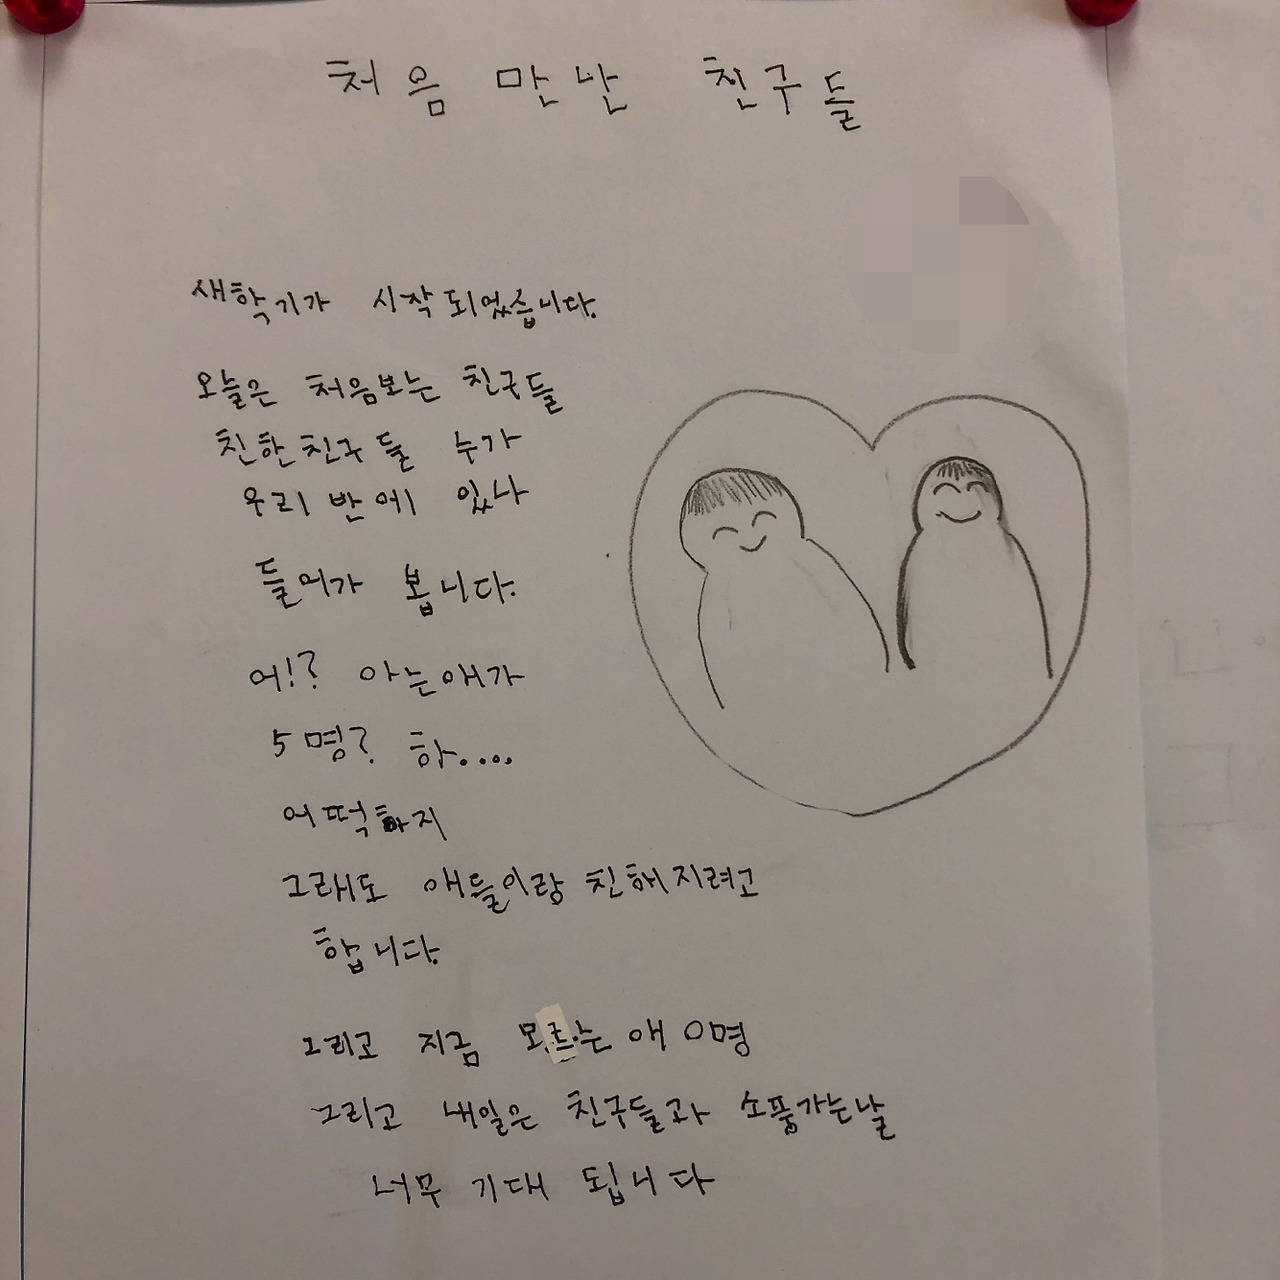 처음 만난 친구들
새학기가 시작되었습니다.
오늘은 처음보는 친구들
친한친구들 누가
우리 반에 있나
들어가 봅니다.
어!? 아는애가
5명? 하....
어떡하지
그래도 애들이랑 친해지려고
합니다.
그리고 지금 모르는 애 0명
그리고 내일은 친구들과 소풍가는날
너무 기대 됩니다